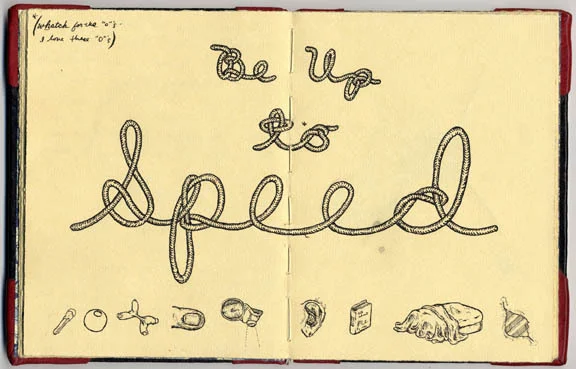 *(Whatch for the "o"s.
I love these "O"s)
Be Up
to*
Speed